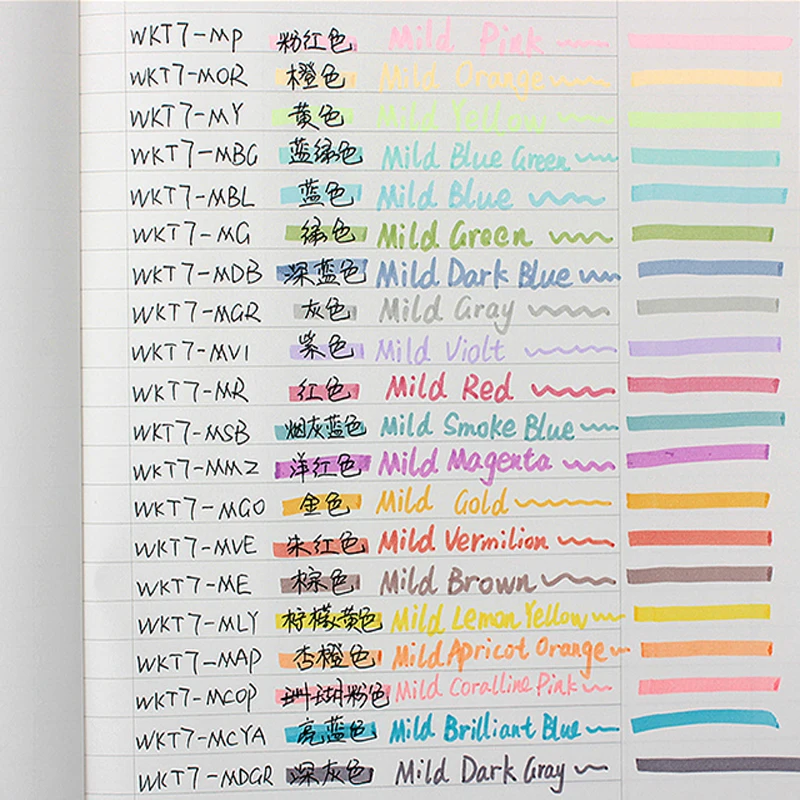 WKT7-MP 粉红色 Mild Pink
WKT7-MOR 橙色 Mild Orange
WKT7-MY 黄色 Mild Yellow
WKT7-MBG 蓝绿色 Mild Blue Green
WKT7-MBL 蓝色 Mild Blue
WKT7-MG 绿色 Mild Green
WKT7-MDB 深蓝色 Mild Dark Blue
WKT7-MGR 灰色 Mild Gray
WKT7-MVI 紫色 Mild Violt
WKT7-MR 红色 Mild Red
WKT7-MSB 烟灰蓝色 Mild Smoke Blue
WKT7-MMZ 洋红色 Mild Magenta
WKT7-MGO 金色 Mild Gold
WKT7-MVE 朱红色 Mild Vermilion
WKT7-ME 棕色 Mild Brown
WKT7-MLY 柠檬黄色 Mild Lemon Yellow
WKT7-MAP 杏橙色 Mild Apricot Orange
WKT7-MCOP 珊瑚粉色 Mild Coralline Pink
WKT7-MCYA 亮蓝色 Mild Brilliant Blue
WKT7-MDGR 深灰色 Mild Dark Gray